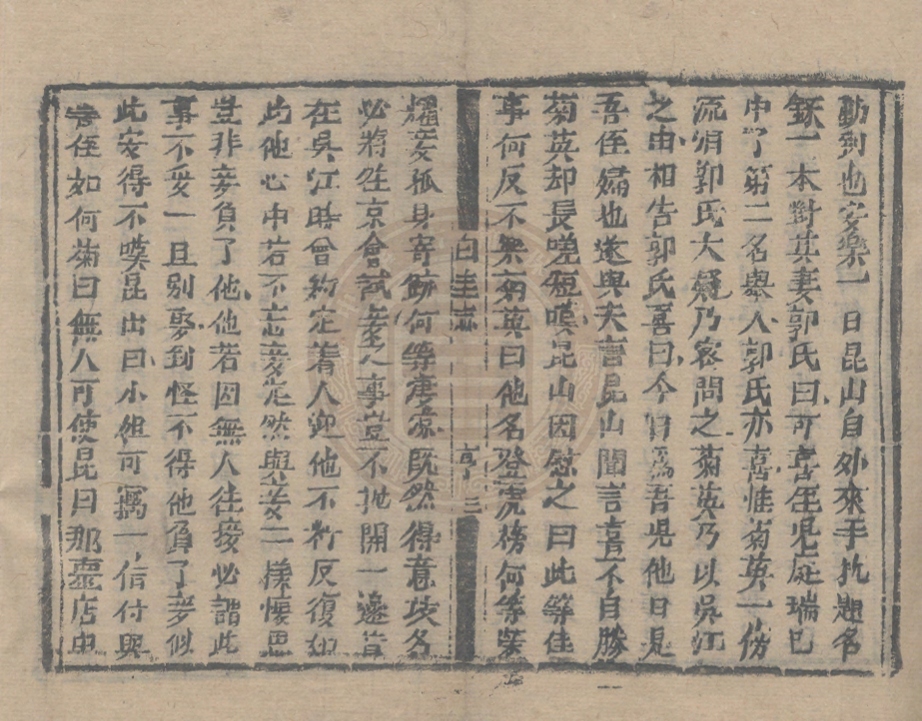 動到也安樂一日昆山自外來手抗題名
錄一本對其妻郭氏曰可喜侄兒庭瑞已
中了第二名舉人郭氏亦喜惟菊英一傍
流涓郭氏大疑乃密問之菊英乃以吳江
之由相告郭氏喜曰今日為吾児他日是
吾侄婦也遂與夫言昆山聞言喜不自勝
菊英却長嗟短嘆昆山因慰之曰此等佳
事何反不樂菊英曰他名登虎榜何等榮
白圭志 亨 三
耀妾孤身寄跡何等凄凉既然得意茂名
必將往京會試妾之事豈不抛開一邊昔
在吳江時曾約定着人迎他不料反復如
此他心中若不忘妾定然與妾一樣懷思
豈非妾負了他他若因無人往接必諧此
事不妥一旦別娶到怪不得他負了妾似
此安得不嘆昆山曰小姐可寫一信付與
舍侄如何菊曰無人可使昆曰那壷店中